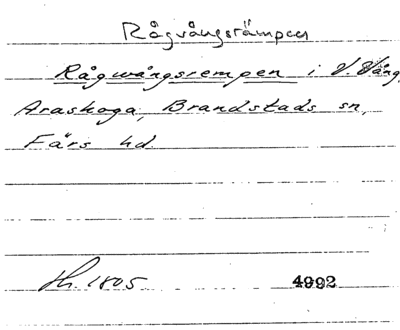 Rågvångsrämpen
Rågwångsrempen i V. Vång,
Araskoga, Brandstads sn,
Färs hd.
Lh. 1805 4992